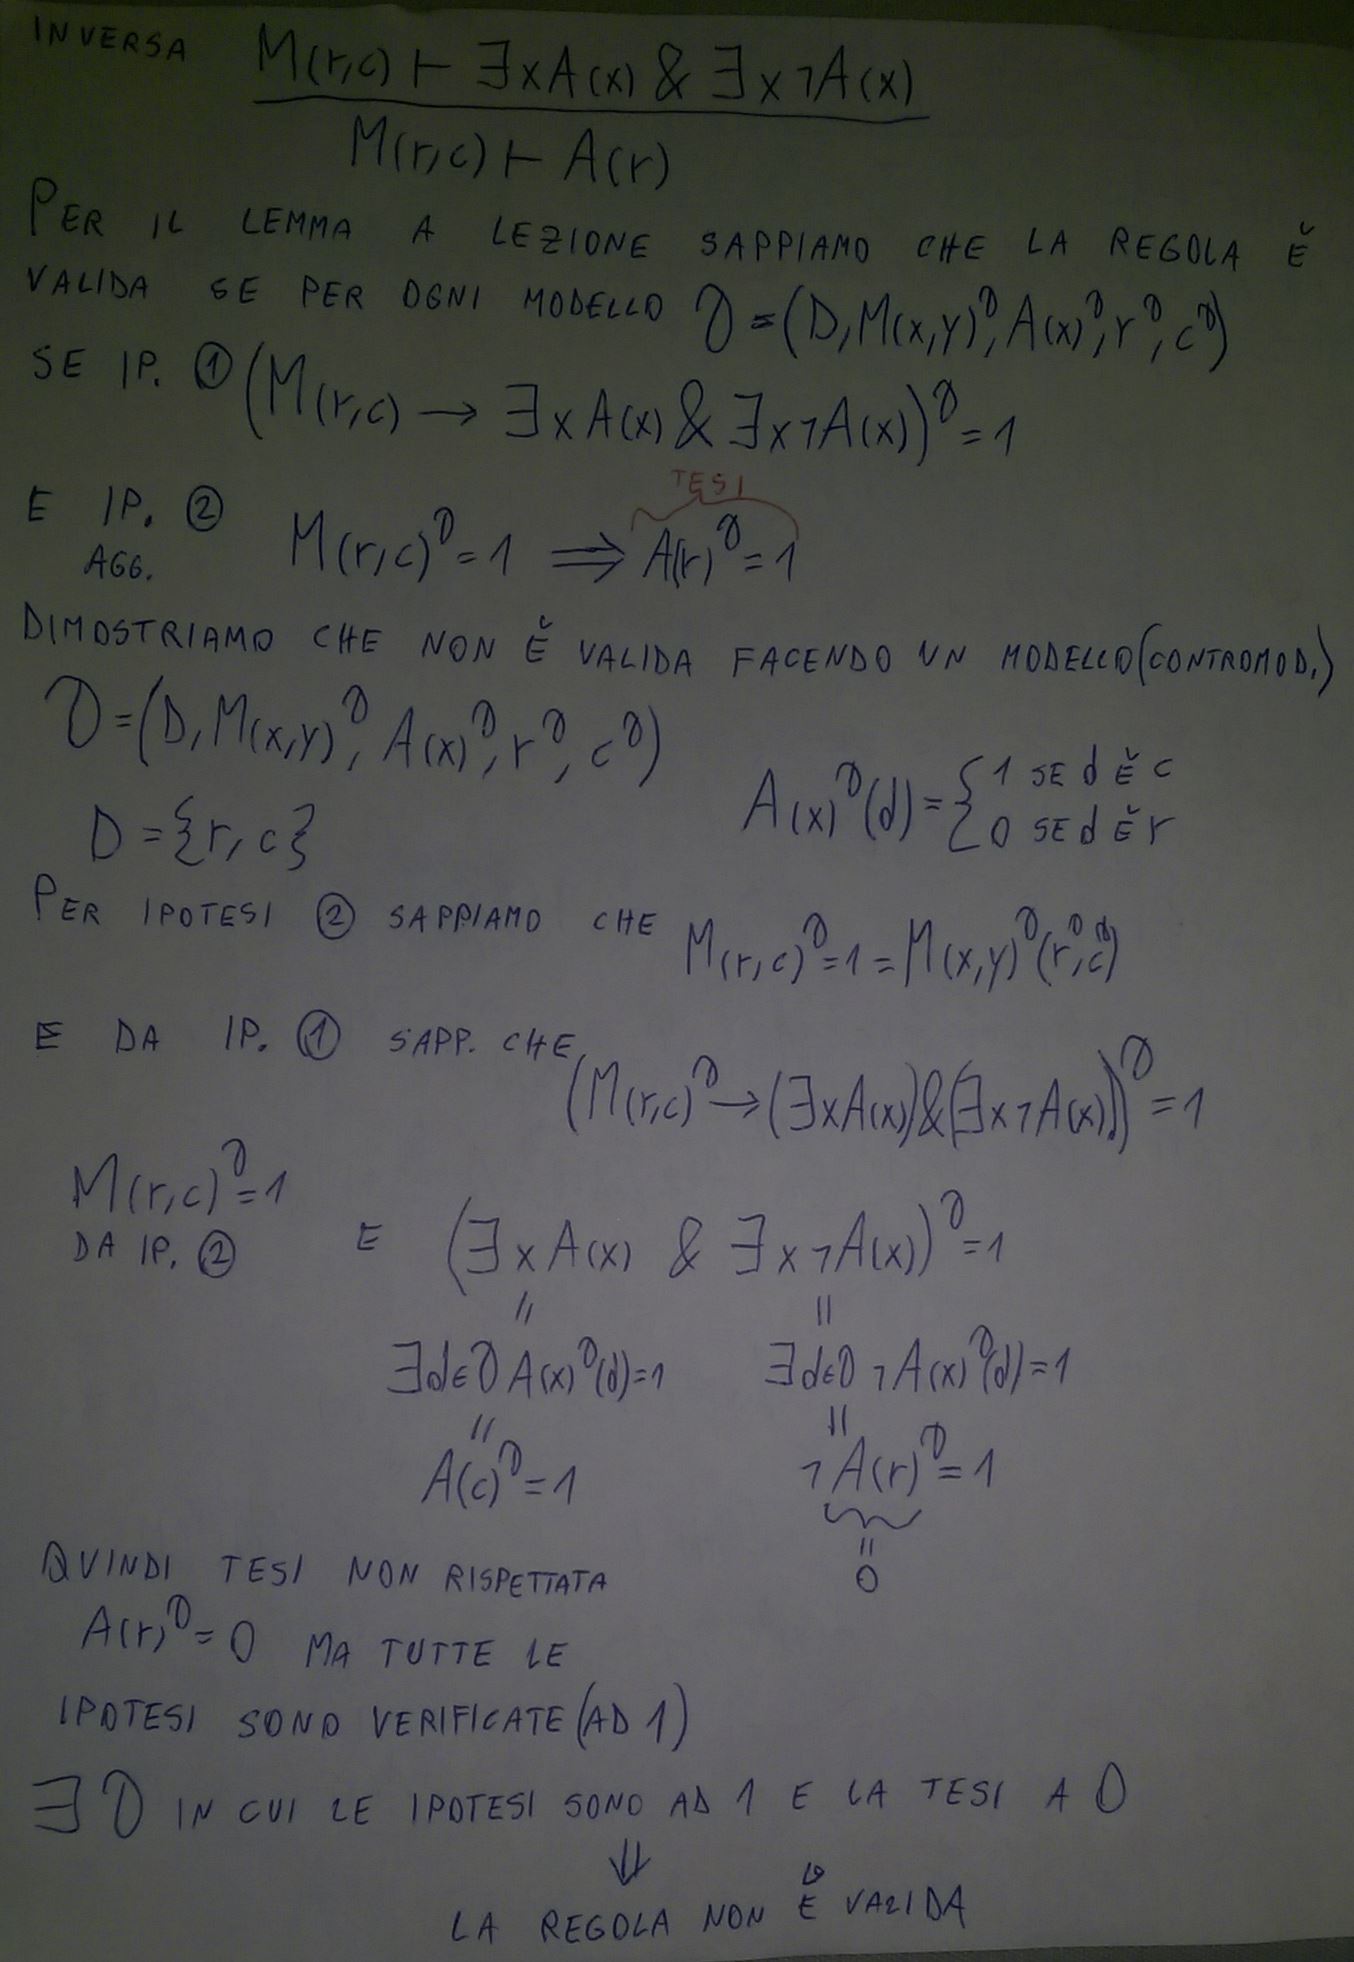 INVERSA M(r,c) ⊢ ∃xA(x) & ∃x¬A(x)
M(r,c) ⊢ A(r)
PER IL LEMMA A LEZIONE SAPPIAMO CHE LA REGOLA È
VALIDA SE PER OGNI MODELLO D = (D, M(x,y)^D, A(x)^D, r^D, c^D)
SE IP. ① (M(r,c) → ∃xA(x) & ∃x¬A(x))^D = 1
TESI
E IP. ② M(r,c)^D = 1 ⟹ A(r)^D = 1
AGG.
DIMOSTRIAMO CHE NON È VALIDA FACENDO UN MODELLO (CONTROMOD.)
D = (D, M(x,y)^D, A(x)^D, r^D, c^D)
A(x)^D(d) = { 1 SE d È c
0 SE d È r
D = {r, c}
PER IPOTESI ② SAPPIAMO CHE M(r,c)^D = 1 = M(x,y)^D(r^D, c^D)
E DA IP. ① SAPP. CHE
(M(r,c)^D → (∃xA(x)) & (∃x¬A(x)))^D = 1
M(r,c)^D = 1
DA IP. ② E (∃xA(x) & ∃x¬A(x))^D = 1
= =
∃d∈D A(x)^D(d) = 1 ∃d∈D ¬A(x)^D(d) = 1
= =
A(c)^D = 1 ¬A(r)^D = 1
=
0
QUINDI TESI NON RISPETTATA
A(r)^D = 0 MA TUTTE LE
IPOTESI SONO VERIFICATE (AD 1)
∃ D IN CUI LE IPOTESI SONO AD 1 E LA TESI A 0
⇓
LA REGOLA NON È VALIDA